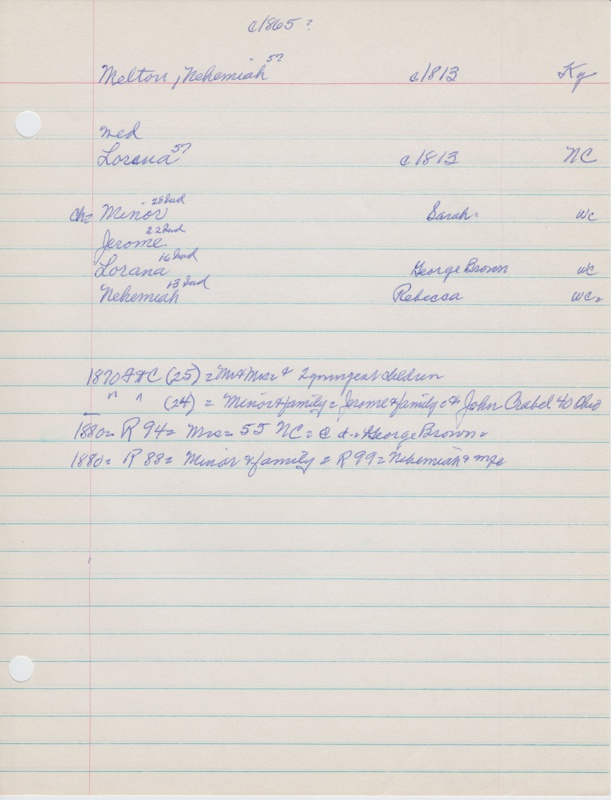 c1865?
Melton, Nehemiah 57 c1813 Ky
med
Lorana 57 c1813 NC
Ch= Minor 28 Ind Sarah= WC
Jerome 22 Ind
Lorana 16 Ind George Brown WC
Nehemiah 13 Ind Rebecca WC=
1870 (25) = Mr & Mrs = & 2 youngest children
" " (24) = Minor & family = Jerome & family = & John Crabel 40 Ohio
1880 = R 94 = Mrs = 55 NC = @ George Brown =
1880 = R 88 = Minor & family = R 99 = Nehemiah &